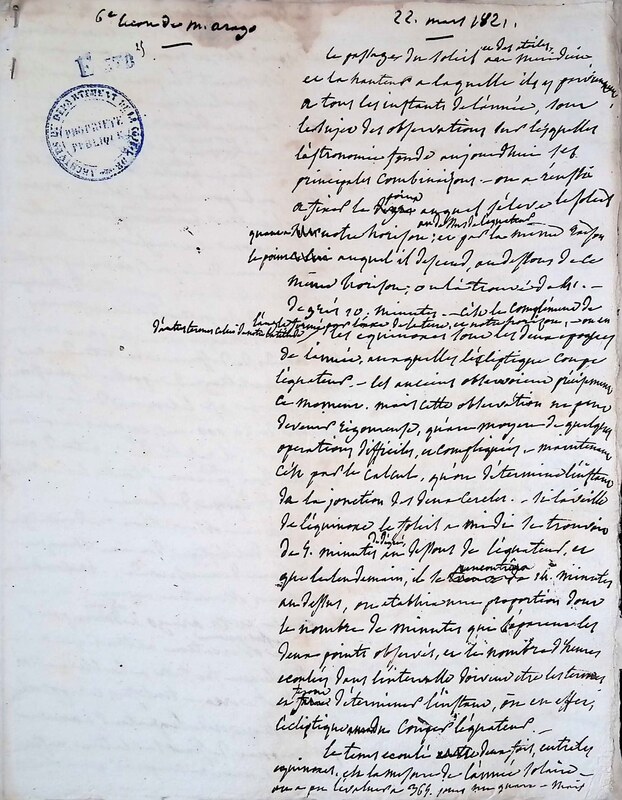 6e leçon de m. arago
22. mars 1821.
E 378
ARCHIVES DU DEPARTEMENT DE LA COTE D'OR
PROPRIETE PUBLIQUE
le passage du soleil et des étoiles au méridien
et la hauteur a laquelle ils y parviennent
a tous les instants de l'année, sont
le sujet des observations sur lesquelles
l'astronomie fonde aujourdhui ses
principales combinaisons – on a
a fixer le point auquel s'élève le soleil
au dessus de l'équateur
notre horison; et par la même raison
le point auquel il descend, au dessous de ce
même horison; on l'a trouvé de
Degrés 10. minutes. – C'est le complément de
l'angle formé par l'axe de la terre, et notre horison, – on
les equinoxes sont les deux époques
de l'année, auxquelles l'écliptique coupe
l'équateur. – les anciens observoient précisement
ce moment. mais cette observation ne peut
devenir rigoureuse, qu'au moyen de quelques
operations difficiles, et compliquées – maintenant
c'est par le calcul, qu'on détermine l'instant
de la jonction des deux cercles. – si la veille
de l'équinoxe le soleil a midi se trouvoit
de 4. minutes de degrés, en dessous de l'équateur, et
que le lendemain, il se rencontrera de minutes
au dessus, on etablit une proportion dont
le nombre de minutes qui séparent les
deux points observés, et le nombre d'heures
ecoulées dans l'intervalle doivent etre les termes
et determiner l'instant, ou en effet,
l'écliptique a du couper l'équateur. –
le tems ecoulé deux fois, entre les
equinoxes, est la mesure de l'année solaire –
on a pu l'evaluer a 365. jours un quart – mais